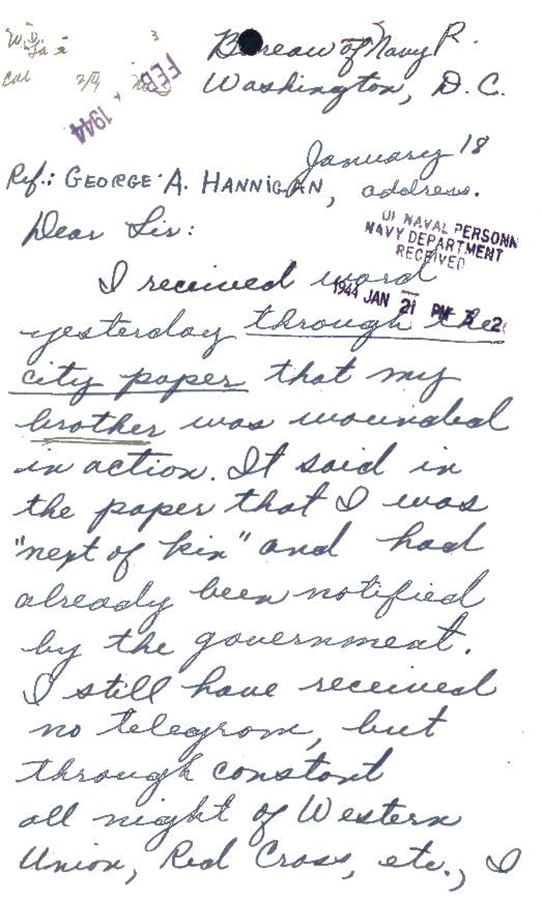 Bureau of Navy P.
Washington, D.C.
FEB 1944
January 18
Ref.: GEORGE A. HANNIGAN, address.
Dear Sir:
OF NAVAL PERSONN
NAVY DEPARTMENT
RECEIVED
1944 JAN 21 PM 3 2
I received word
yesterday through the
city paper that my
brother was wounded
in action. It said in
the paper that I was
"next of kin" and had
already been notified
by the government.
I still have received
no telegram, but
through constant
all night of Western
Union, Red Cross, etc., I